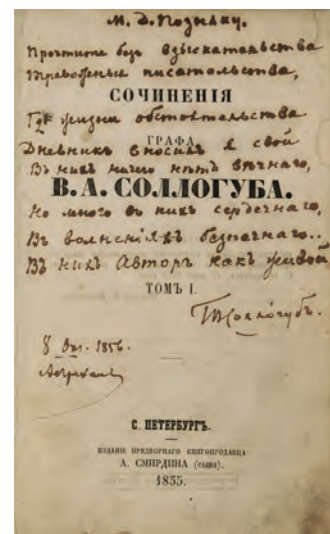 М. Д. Позняку.
Прочтите безъ взыскательства
писательства,
СОЧИНЕНІЯ
Гдѣ жизни обстоятельства
ГРАФА
Дневникъ вносилъ я свой
Въ нихъ ничего нѣтъ вѣчнаго,
В. А. СОЛЛОГУБА.
Но много въ нихъ сердечнаго,
Въ безпечнаго..
Въ нихъ Авторъ какъ живой
ТОМЪ I.
Соллогубъ.
8 1856.
С. ПЕТЕРБУРГЪ.
ИЗДАНІЕ ПРИДВОРНАГО КНИГОПРОДАВЦА
А. СМИРДИНА (сына).
1855.